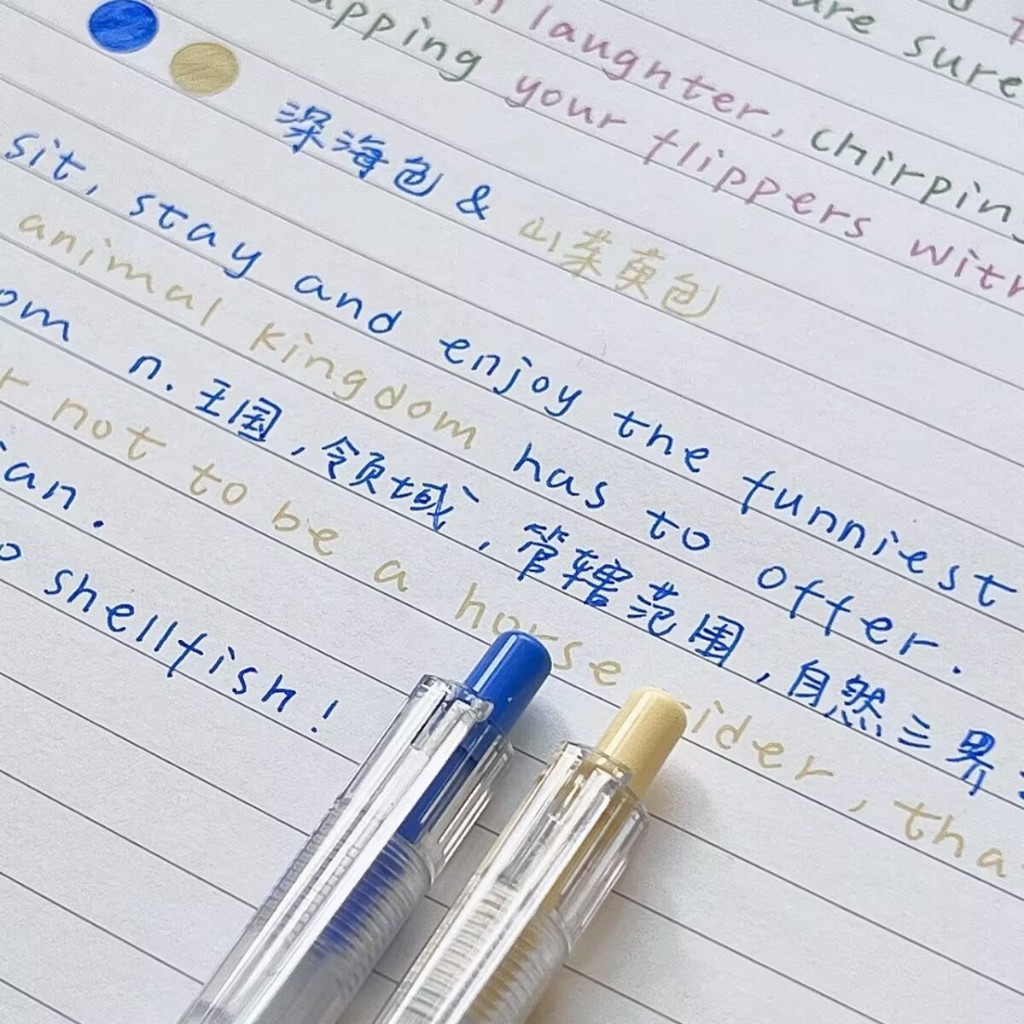 are sure
laughter, chirping
your flippers with
深海色 & 山茱萸色
sit, stay and enjoy the funniest
animal kingdom has to offer.
n. 王国，领域，管辖范围，自然三界
not to be a horse
shellfish!